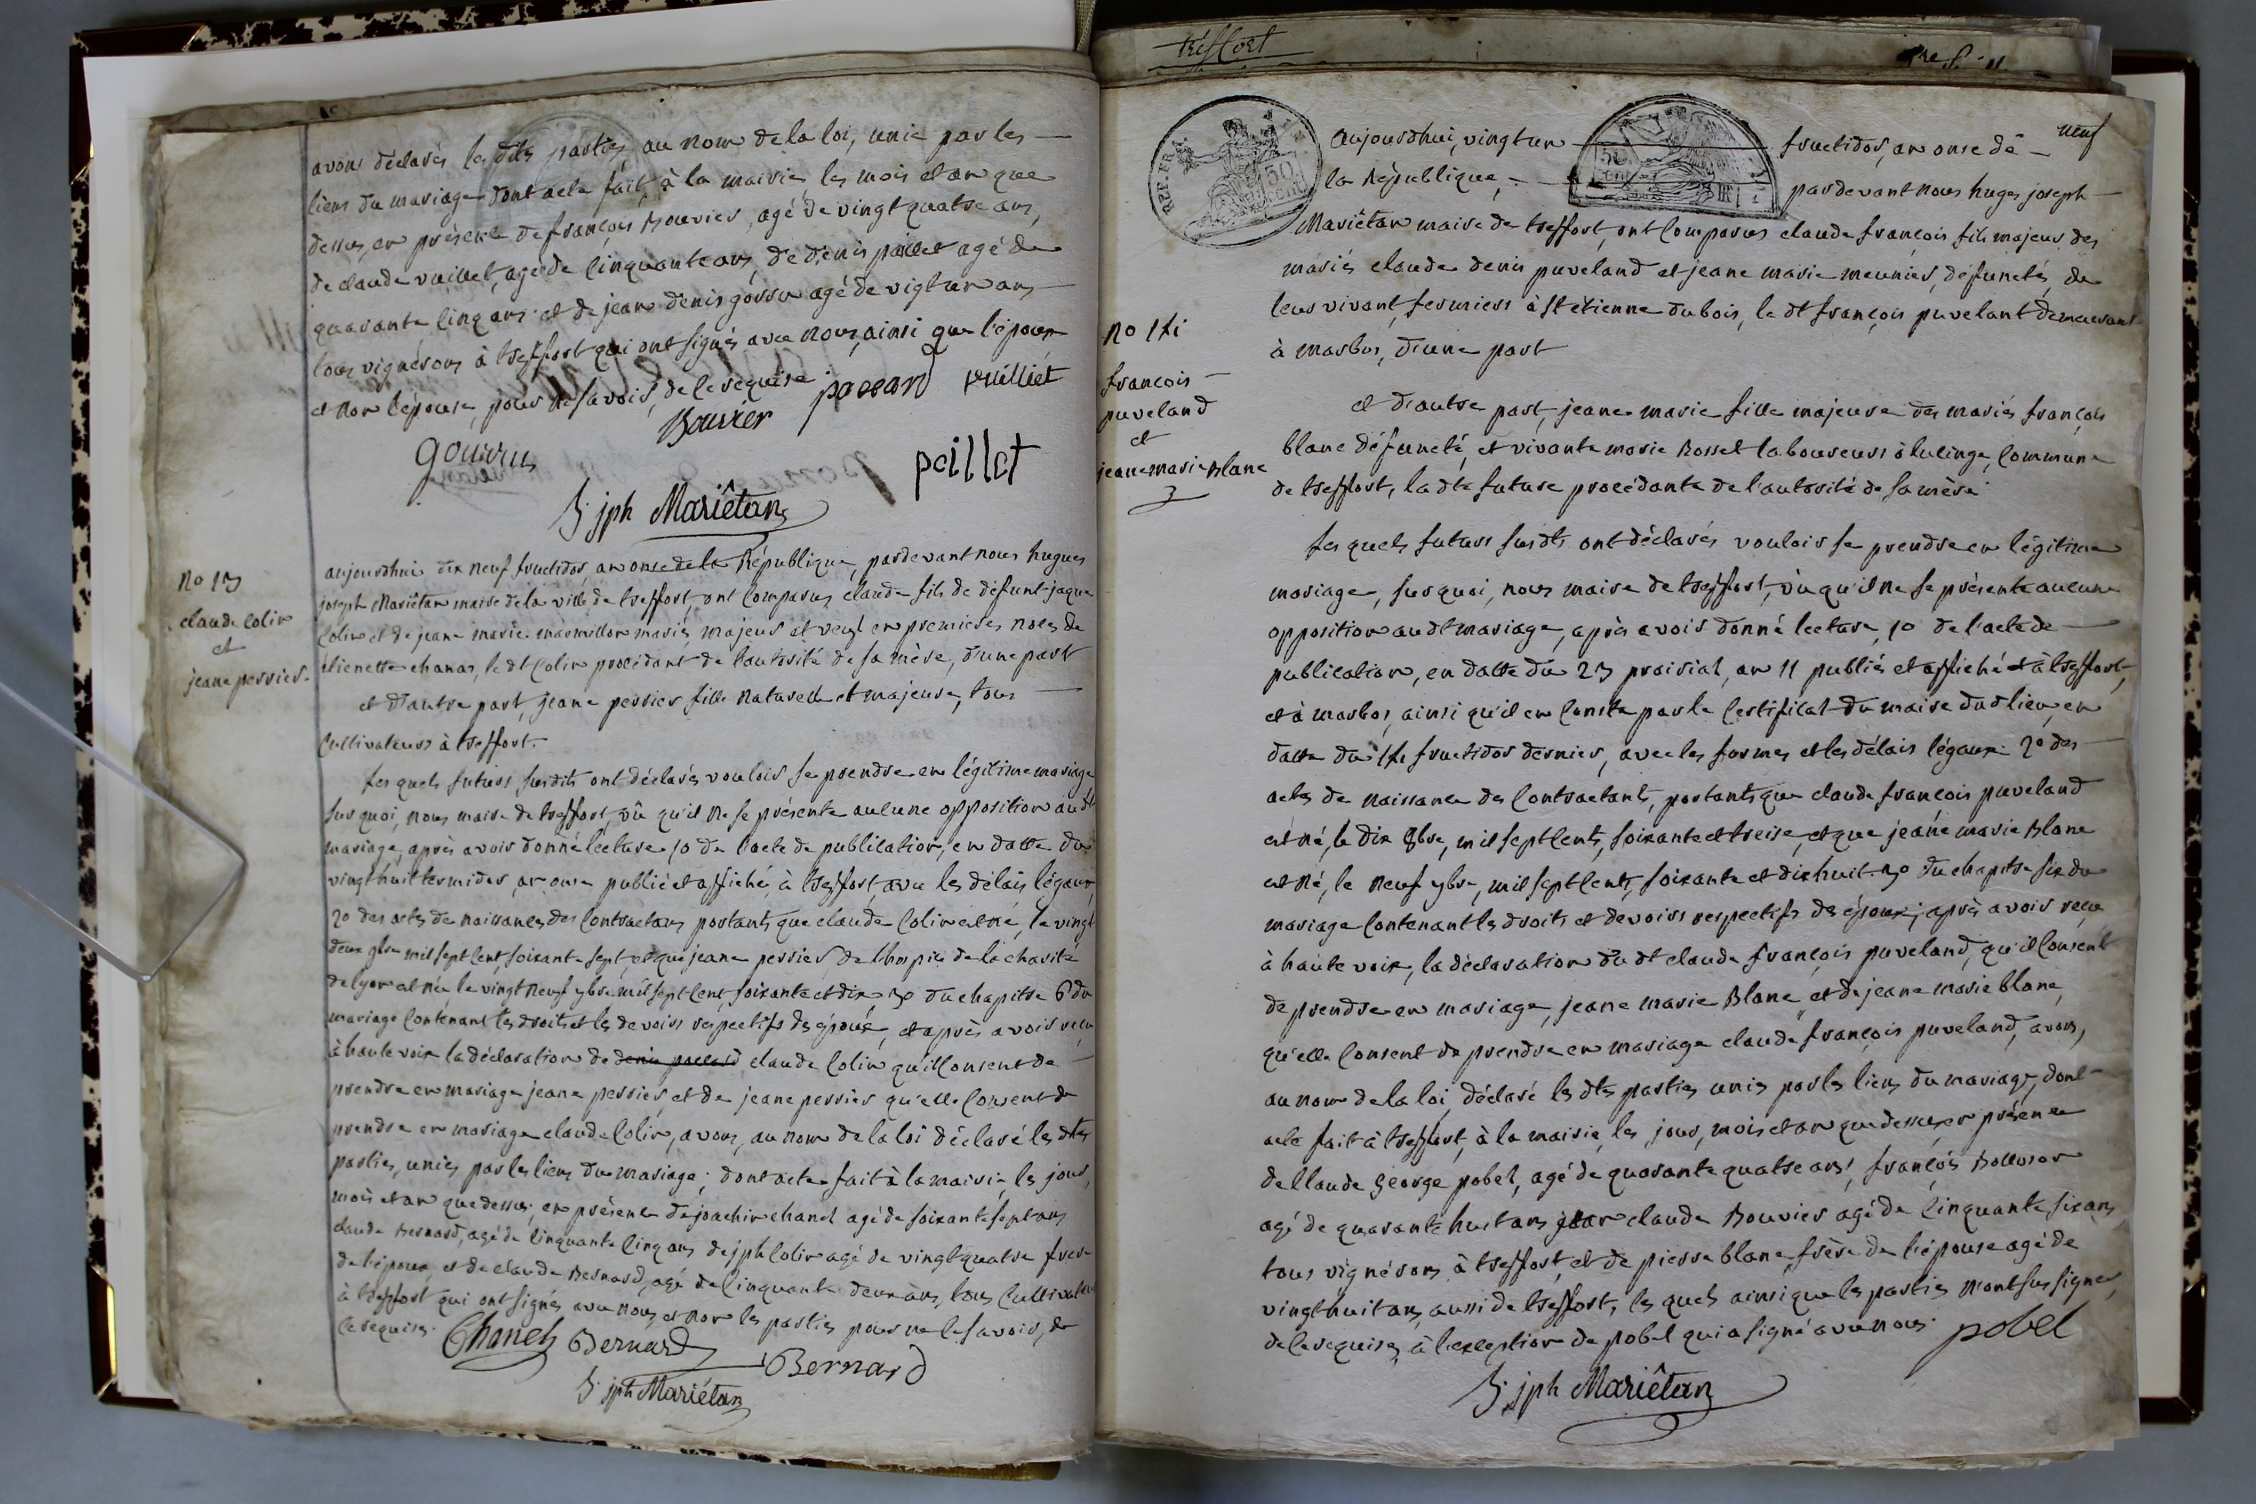 avons déclarés les dtes parties, au nom de la loi, unie par les
liens du mariage dont acte fait, à la mairie, les mois et an que
dessus, en présence de françois Bouvier, agé de vingt quatre ans,
de claude vuillet, agé de cinquante ans, de denis paillet agé de
quarante cinq ans et de jean denis gossu agé de vigt un ans
tous vignérons à treffort qui ont signés avec nous, ainsi que l'époux
et non l'épouse, pour ne savoir, de ce requise
Bouvier paccard vuilliet
gourru
peillet
h. jph Mariêtan
No 13
claude colin
et
jeane perrier
aujourdhui dix neuf fructidor, an onse de la République, pardevant nous hugues
joseph Mariêtan maire de la ville de treffort, ont comparus claude fils de défunt jaque
colin et de jeane marie marmillon mariés, majeur et veuf en premieres noces de
étienette chanas, le dt colin procédant de l'autorité de sa mère, d'une part
et d'autre part, jeane perrier fille naturelle et majeure, tous
cultivateurs à treffort.
les quels futurs susdits ont déclarés vouloir se prendre en légitime mariage
sur quoi, nous maire de treffort, vû qu'il ne se présente aucune opposition audt
mariage, après avoir donné lecture 1o de l'acte de publication, en datte du
vingt huit termidor, an onse publié et affiché, à treffort, avec les délais légaux,
2o des actes de naissances des contractans portants que claude colin est né, le vingt
deux 9bre mil sept cent, soixante sept, et que jeane perrier, de l'hospice de la charité
de lyon est née le vingt neuf ybre mil sept cent soixante et dix 3o du chapitre 6 du
mariage contenant les droits et les devoirs respectifs des époux, et après avoir reçu
à haute voix la déclaration de denis paccard claude colin qu'il consent de
prendre en mariage jeane perrier, et de jeane perrier qu'elle consent de
prendre en mariage claude colin, avons, au nom de la loi déclaré les dtes
parties, unies par les liens du mariage; dont acte fait à la mairie, les jour,
mois et an que dessus; en présence de joachin chanel agé de soixante sept ans
claude Bernard, agé de cinquante cinq ans de jph colin agé de vingt quatre frere
de l'époux, et de claude Bernard, agé de cinquante deux ans, tous cultivateurs
à treffort qui ont signés avec nous, et non les parties pour ne le savoir, de
ce requises.
Chanel Bernard Bernard
h. jph Mariétan
treffort
neuf
REP. FRA.
50
CENT
Aujourdhui, vingt un fructidor, an onse de
la République, pardevant nous huges joseph
Mariêtan maire de treffort, ont comparus claude françois fils majeur des
mariés claude denis puveland et jeane marie meunier, défunctés, de
leur vivant, fermiers à st etienne du bois, le dt françois puvelant demeurant
à marbos, d'une part
No 14
françois
puveland
et
jeane marie Blanc
et d'autre part, jeane marie fille majeure des mariés françois
blanc défuncté, et vivante marie Rosset laboureurs à lucinge, commune
de treffort, la dte future procédante de l'autorité de sa mère
les quels futurs susdts ont déclarés vouloir se prendre en légitime
mariage, sur quoi, nous maire de treffort, vû qu'il ne se présente aucune
opposition audt mariage, après avoir donné lecture, 1o de l'acte de
publication, en datte du 23 prairial, an 11 publié et affiché à treffort,
et à marbos, ainsi qu'il en conste par le certificat du maire dud lieu, en
datte du 14 fructidor dernier, avec les formes et les délais légaux 2o des
actes de naissance des contractants, portants que claude françois puveland
est né, le dix 8bre, mil sept cents, soixante et treise, et que jeane marie Blanc
est né, le neuf ybre, mil sept cents, soixante et dix huit. 3o du chapitre six du
mariage contenant les droits et devoirs respectifs des époux; après avoir reçu
à haute voix, la déclaration du dt claude françois puveland, qu'il consent
de prendre en mariage, jeane marie Blanc et de jeane marie blanc
qu'elle consent de prendre en mariage claude françois puveland, avons,
au nom de la loi, déclaré les dtes parties unies par les liens du mariage, dont
acte fait à treffort, à la mairie, les jour, mois et an que dessus en présence
de claude george pobel, agé de quarante quatre ans, françois
agé de quarante huit ans, claude Bouvier agé de cinquante six ans
tous vignérons à treffort, et de pierre blanc, frère de l'épouse agé de
vingt huit ans, aussi de treffort, les quels ainsi que les parties n'ont su signer,
de ce requises, à l'exception de pobel qui a signé avec nous. pobel
h. jph Mariêtan